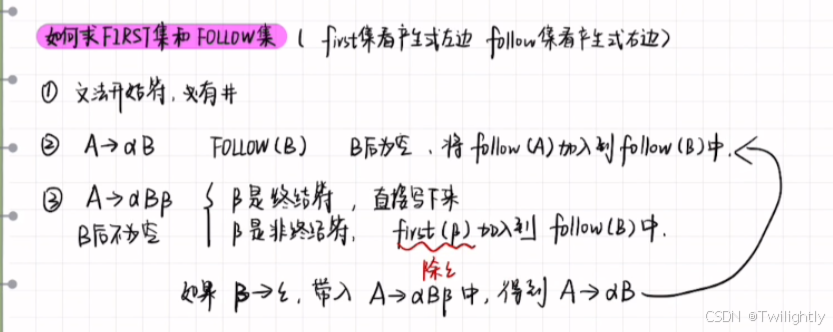 如何求FIRST集和FOLLOW集 ( first集看产生式左边 follow集看产生式右边)
① 文法开始符,必有#
② A→αB FOLLOW(B) B后为空,将follow(A)加入到follow(B)中.
③ A→αBβ { β是终结符,直接写下来
B后不为空 β是非终结符, first(β)加入到 follow(B)中.
除ε
如果 β→ε,带入 A→αBβ中,得到 A→αB
CSDN @Twilightly